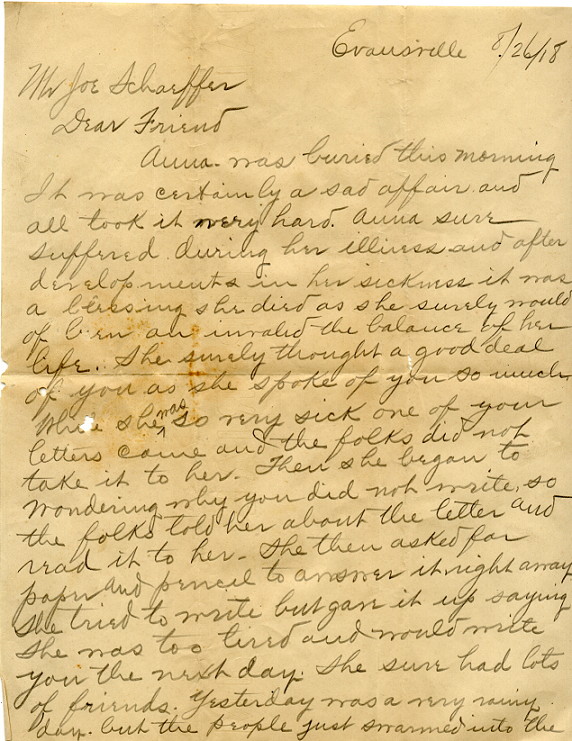 Evansville 8/26/18
Mr Joe Schaeffer
Dear Friend
Anna was buried this morning
It was certainly a sad affair and
all took it very hard. Anna sure
suffered during her illness and after
developments in her sickness it was
a blessing she died as she surely would
of been an invalid the balance of her
life. She surely thought a good deal
of you as she spoke of you so much.
While she was so very sick one of your
letters came and the folks did not
take it to her. Then she began to
wondering why you did not write, so
the folks told her about the letter and
read it to her. She then asked for
paper and pencil to answer it right away
She tried to write but gave it up saying
she was too tired and would write
you the next day. She sure had lots
of friends. Yesterday was a very rainy
day. but the people just swarmed into the